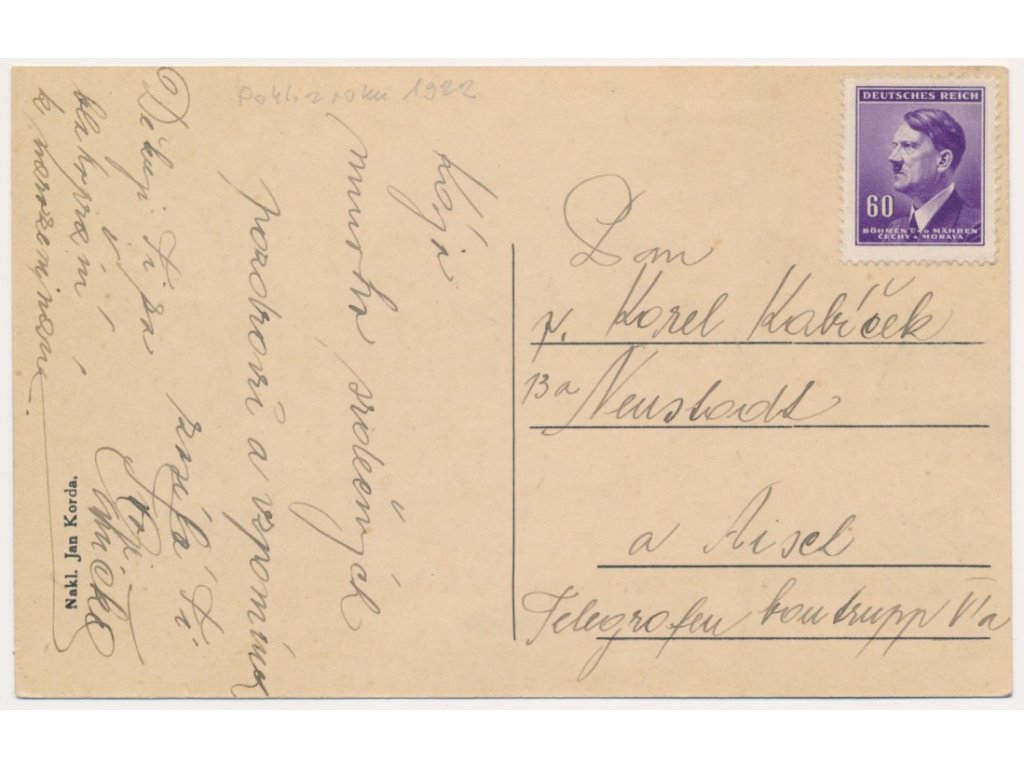 1922
Kája
mnoho srdečných
pozdravů a vzpomínek
zasílá Ti
Děkuji Ti za
blahopřání
k narozeninám.
Nakl. Jan Korda.
DEUTSCHES REICH
60
BÖHMEN U. MÄHREN
ČECHY A MORAVA
Pan
p. Karel Kabíček
13a Neustadt
a Aisch
Telegrafen bautrupp VIa